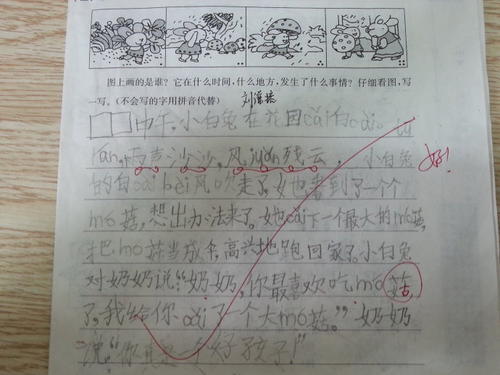 图上画的是谁?它在什么时间,什么地方,发生了什么事情?仔细看图,写
一写。(不会写的字用拼音代替)
中午,小白兔在花园cǎi白cài。tū
rán,雨声沙沙,风juǎn残云,小白兔
的白cài bèi风吹走了。她看到了一个个
mó菇,想出办法来了。她cǎi下一个最大的mó菇,
把mó菇当成伞,高兴地跑回家了。小白兔
对奶奶说:“奶奶,你最喜欢吃mó菇
了,我给你cǎi了一个大mó菇。”奶奶
说:“你真是一个好孩子!”
好!